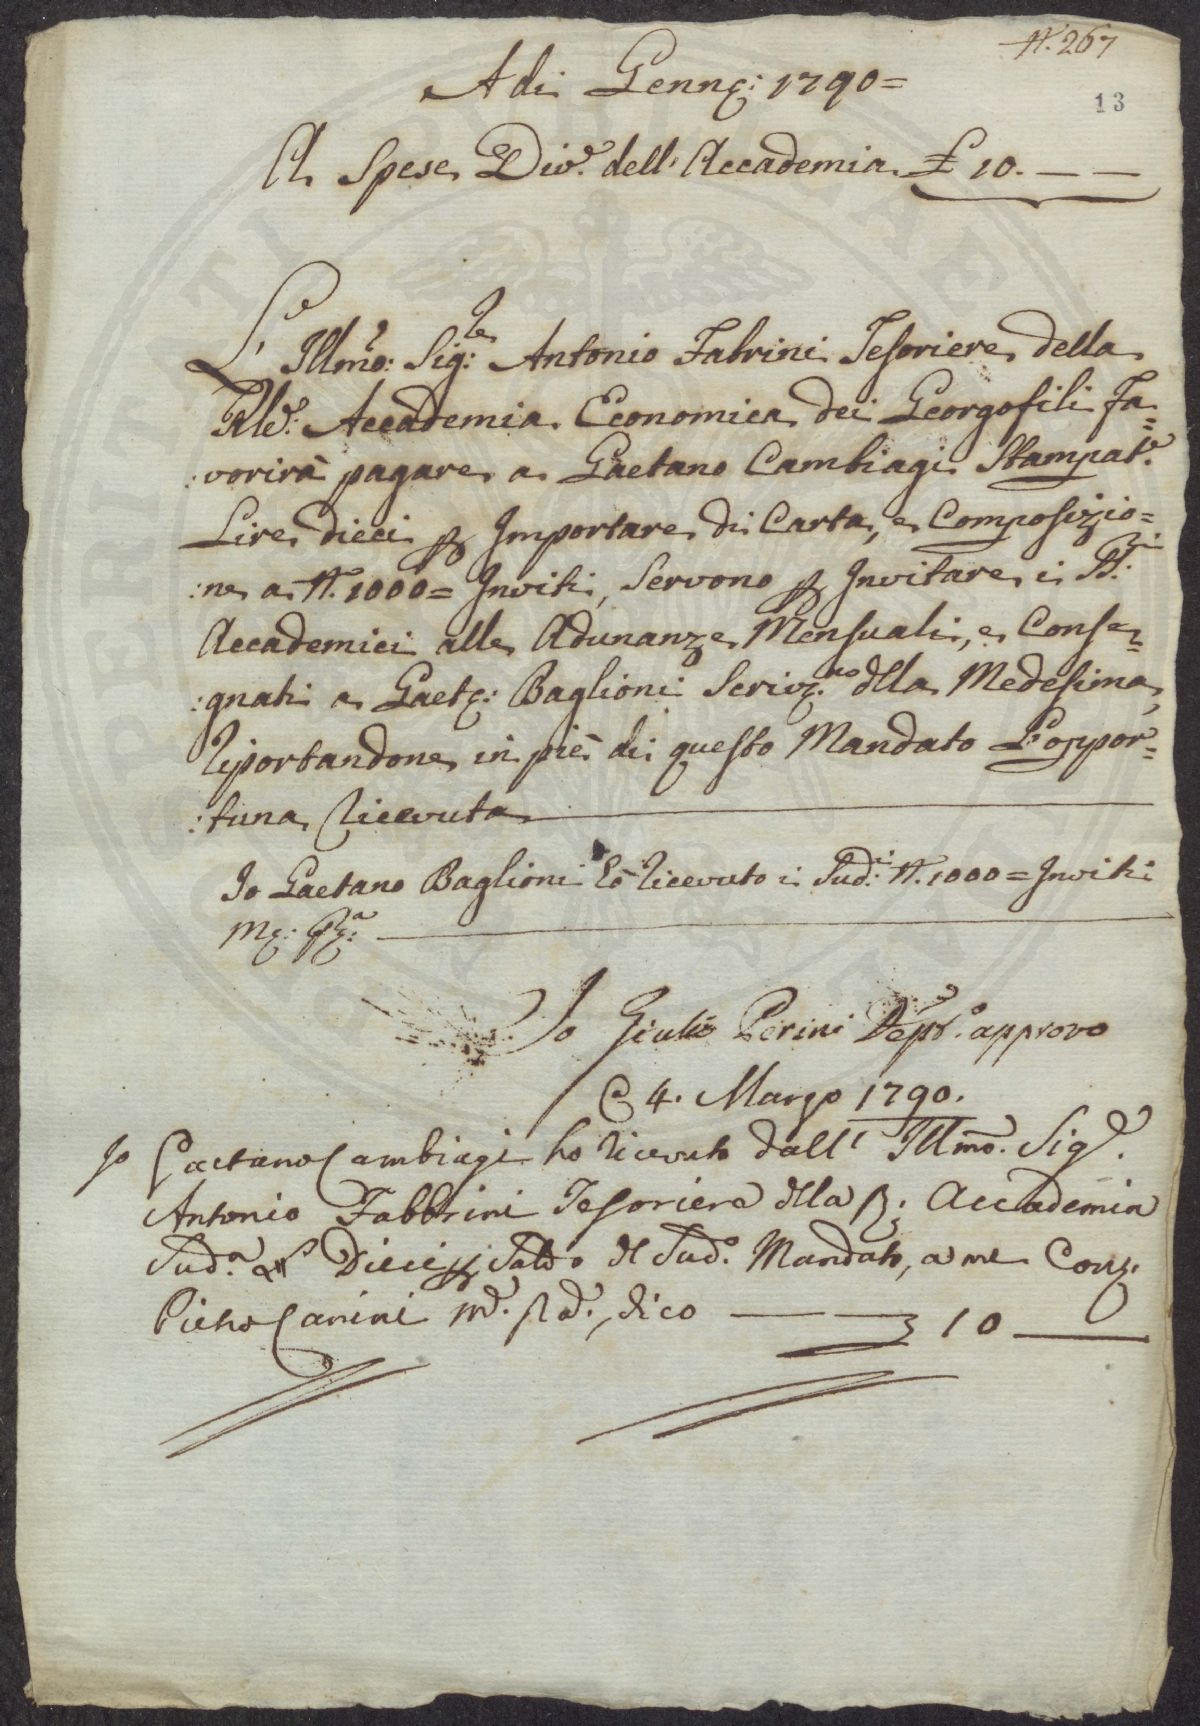 N. 267
A di Genn: 1790=
13
A Spese Div.e dell'Accademia £ 10. — —
L'Illmo: Sig:re Antonio Fabrini Tesoriere della
Rle: Accademia Economica dei Georgofili Fa=
:vorirà pagare a Gaetano Cambiagi Stampat.e
Lire dieci p Importare di Carta, e Composizio=
:ne a N. 1000= Inviti, Servono p Invitare i SS:ri
Accademici alle Adunanze Mensuali, e Conse=
:gnati a Gaet: Baglioni Scriv.no dlla Medesima,
Riportandone in piè di questo Mandato L'oppor=
:tuna Ricevuta
Io Gaetano Baglioni hò Ricevuto i Sud:i N. 1000= Inviti
M: pp:a
Io Giulio Perini Dep.o approvo
4. Marzo 1790.
Io Gaetano Cambiagi ho ricevuto dall'Illmo. Sig.e
Antonio Fabbrini Tesoriere dlla R: Accademia
Sud.a Dieci p Saldo dl Sud.o Mandato, a me Cont.
Pietro Canini dico — 10 —